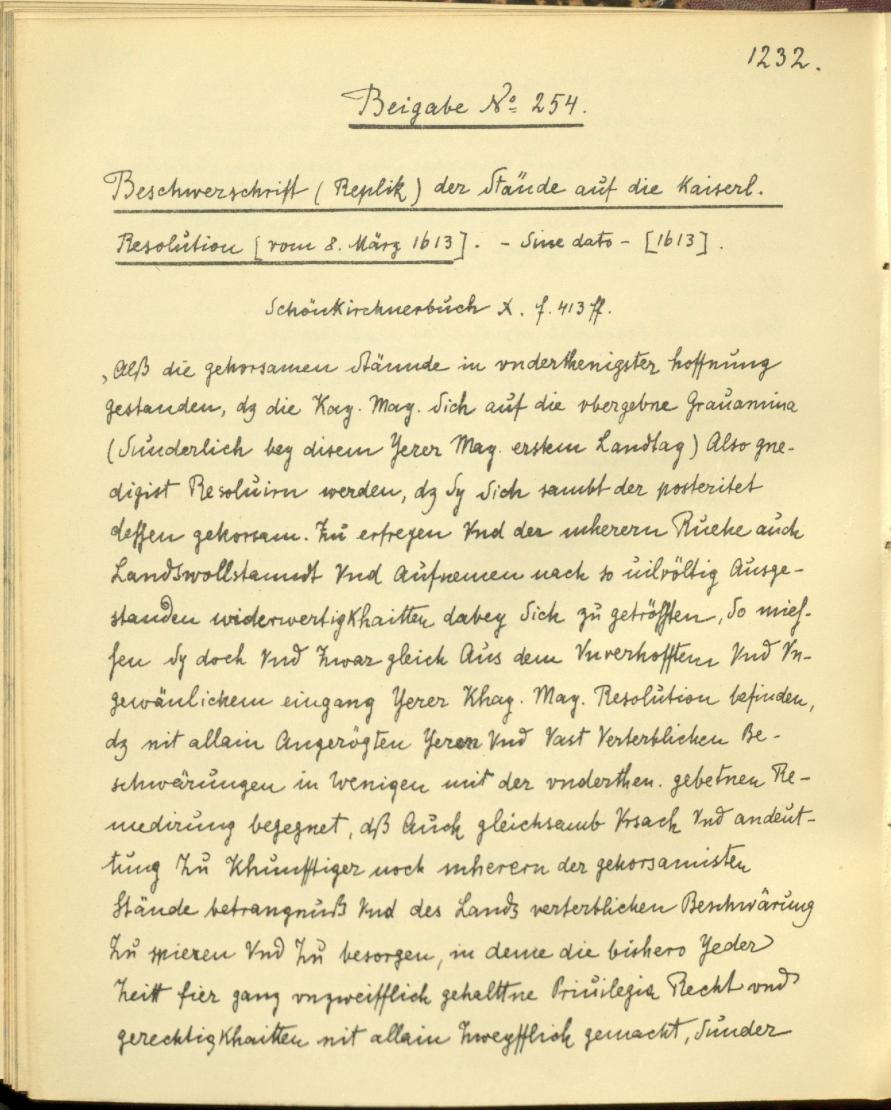 1232.
Beigabe No 254.
Beschwerschrift (Replik) der Stände auf die Kaiserl.
Resolution [vom 8. März 1613]. - Sine dato - [1613].
Schönkirchnerbuch X. f. 413 ff.
„Alß die gehorsamen Stännde in vnderthenigster hoffnung
gestanden, dz die Kay. May. Sich auf die vbergebne Grauamina
(Sunderlich bey disem Yerer May. erstem Landtag) Also gne-
digist Resoluirn werden, dz Sy Sich sambt der posteritet
dessen gehorsam. Zu erfreyen Vnd der mherern Ruehe auch
Landswollstanndt Vnd Aufnemen nach so uilvöltig Ausge-
standen widerwertigKhaitten dabey Sich zu getrössten, So mies-
sen Sy doch Vnd Zwar gleich Aus dem Vnverhofftem Vnd Vn-
gewänlichem eingang Yerer Khay. May. Resolution befinden,
dz nit allain Angerögten Yeren Vnd Vast Verterblichen Be-
schwärungen in Wenigen mit der vnderthen. gebetnen Re-
medirung begegnet, dß Auch gleichsamb Vrsach Vnd andeut-
tung Zu Khunfftiger noch mherern der gehorsamisten
Stände betrangnuß Vnd des Lands verterblichen Beschwärung
Zu spieren Vnd Zu besorgen, in deme die bishero Yeder
Zeitt fier ganz vnzweifflich gehalttne Priuilegia Recht vnd
gerechtigKhaitten nit allain Zweyfflich gemacht, Sunder